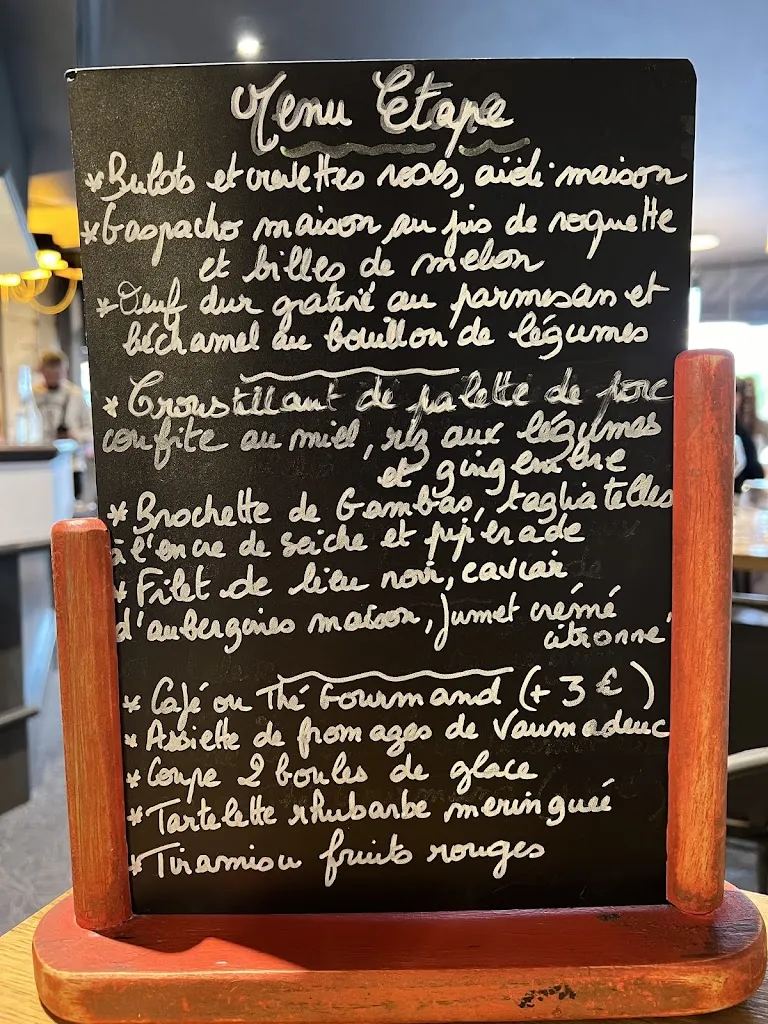 Menu Etape
* Bulots et crevettes roses, aïoli maison
* Gaspacho maison au jus de roquette
et billes de melon
* Oeuf dur gratiné au parmesan et
béchamel au bouillon de légumes
* Croustillant de palette de porc
confite au miel, riz aux légumes
et gingembre
* Brochette de Gambas, tagliatelles
à l'encre de seiche et piperade
* Filet de lieu noir, caviar
d'aubergines maison, fumet crémé
citronné
* Café ou Thé Gourmand (+ 3 €)
* Assiette de fromages de Vaumadeuc
* Coupe 2 boules de glace
* Tartelette rhubarbe meringuée
* Tiramisu fruits rouges